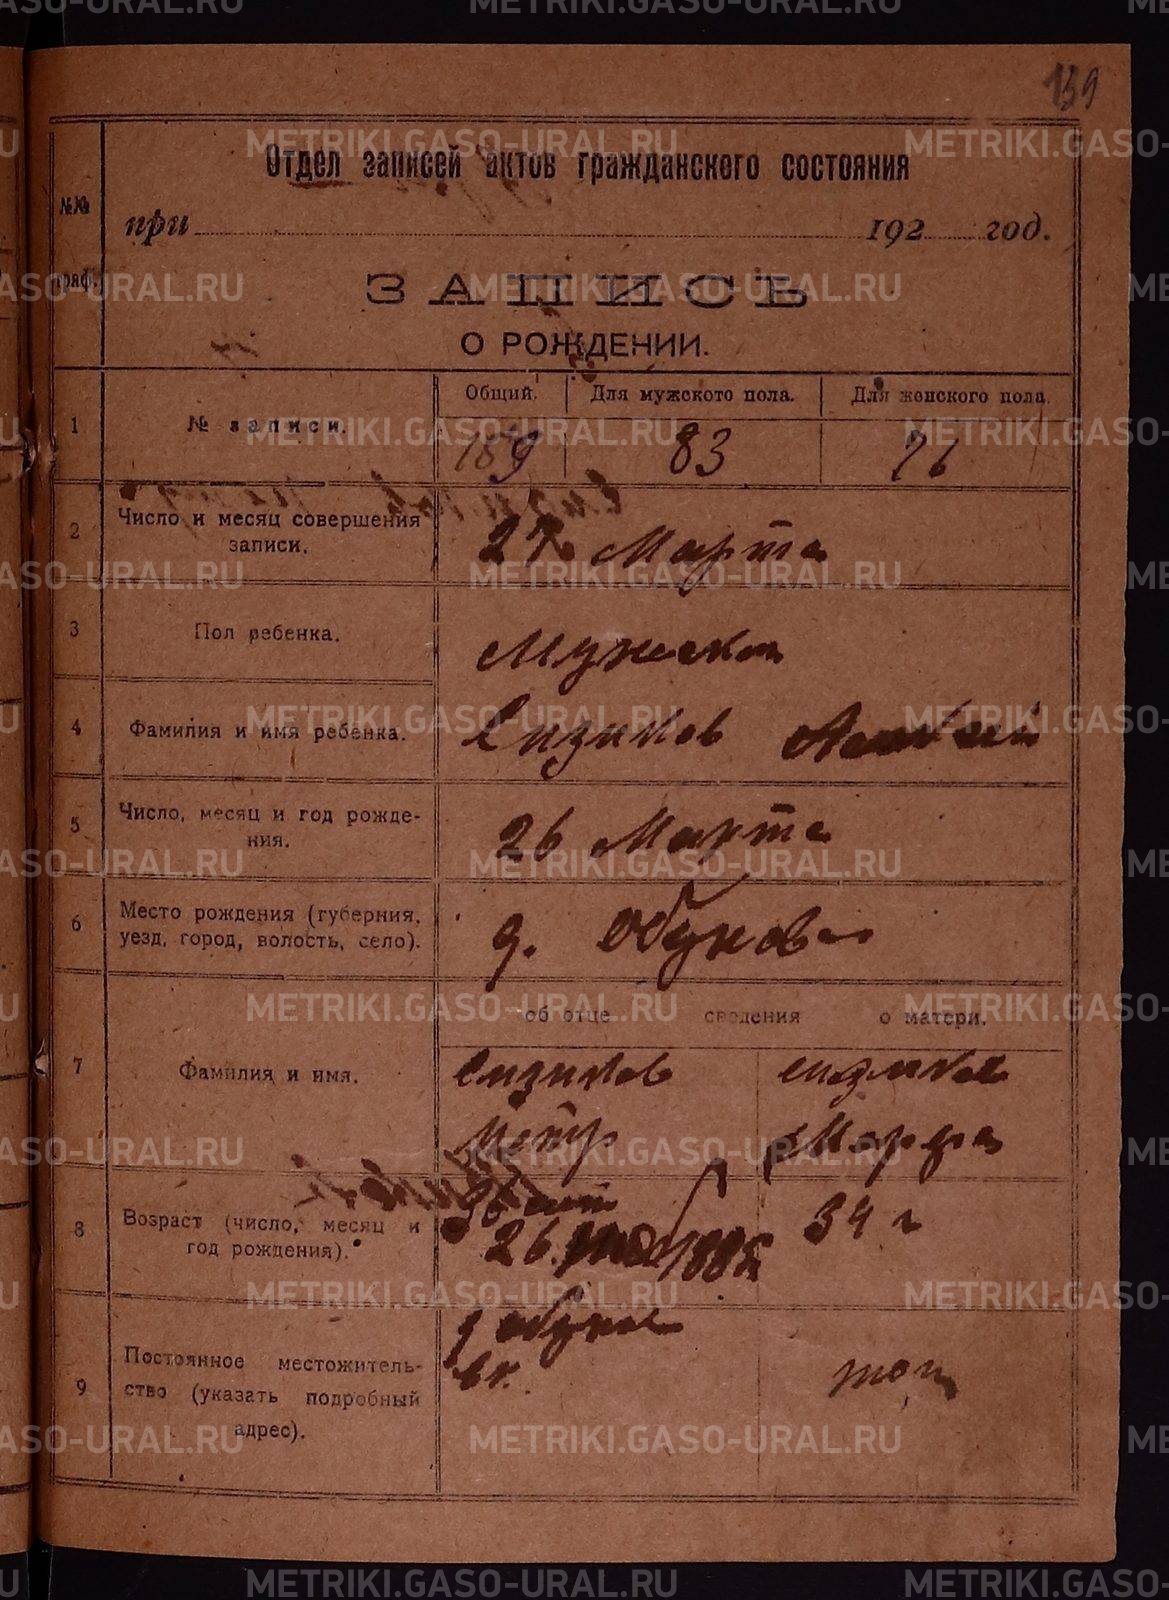 139
Отдел записей актов гражданского состояния
№№ граф.
при 192 год.
ЗАПИСЬ
О РОЖДЕНИИ.
Общий. Для мужского пола. Для женского пола.
1 № записи. 159 83 76
2 Число и месяц совершения записи. 27 Марта
3 Пол ребенка. Мужской
4 Фамилия и имя ребенка. Сизиков Алексей
5 Число, месяц и год рождения. 26 Марта
6 Место рождения (губерния, уезд, город, волость, село). д. Обухова
об отце сведения о матери.
7 Фамилия и имя. Сизиков Петр Сизикова Марфа
8 Возраст (число, месяц и год рождения). 36 лет 26 34 г
9 Постоянное местожительство (указать подробный адрес). д Обухова
METRIKI.GASO-URAL.RU